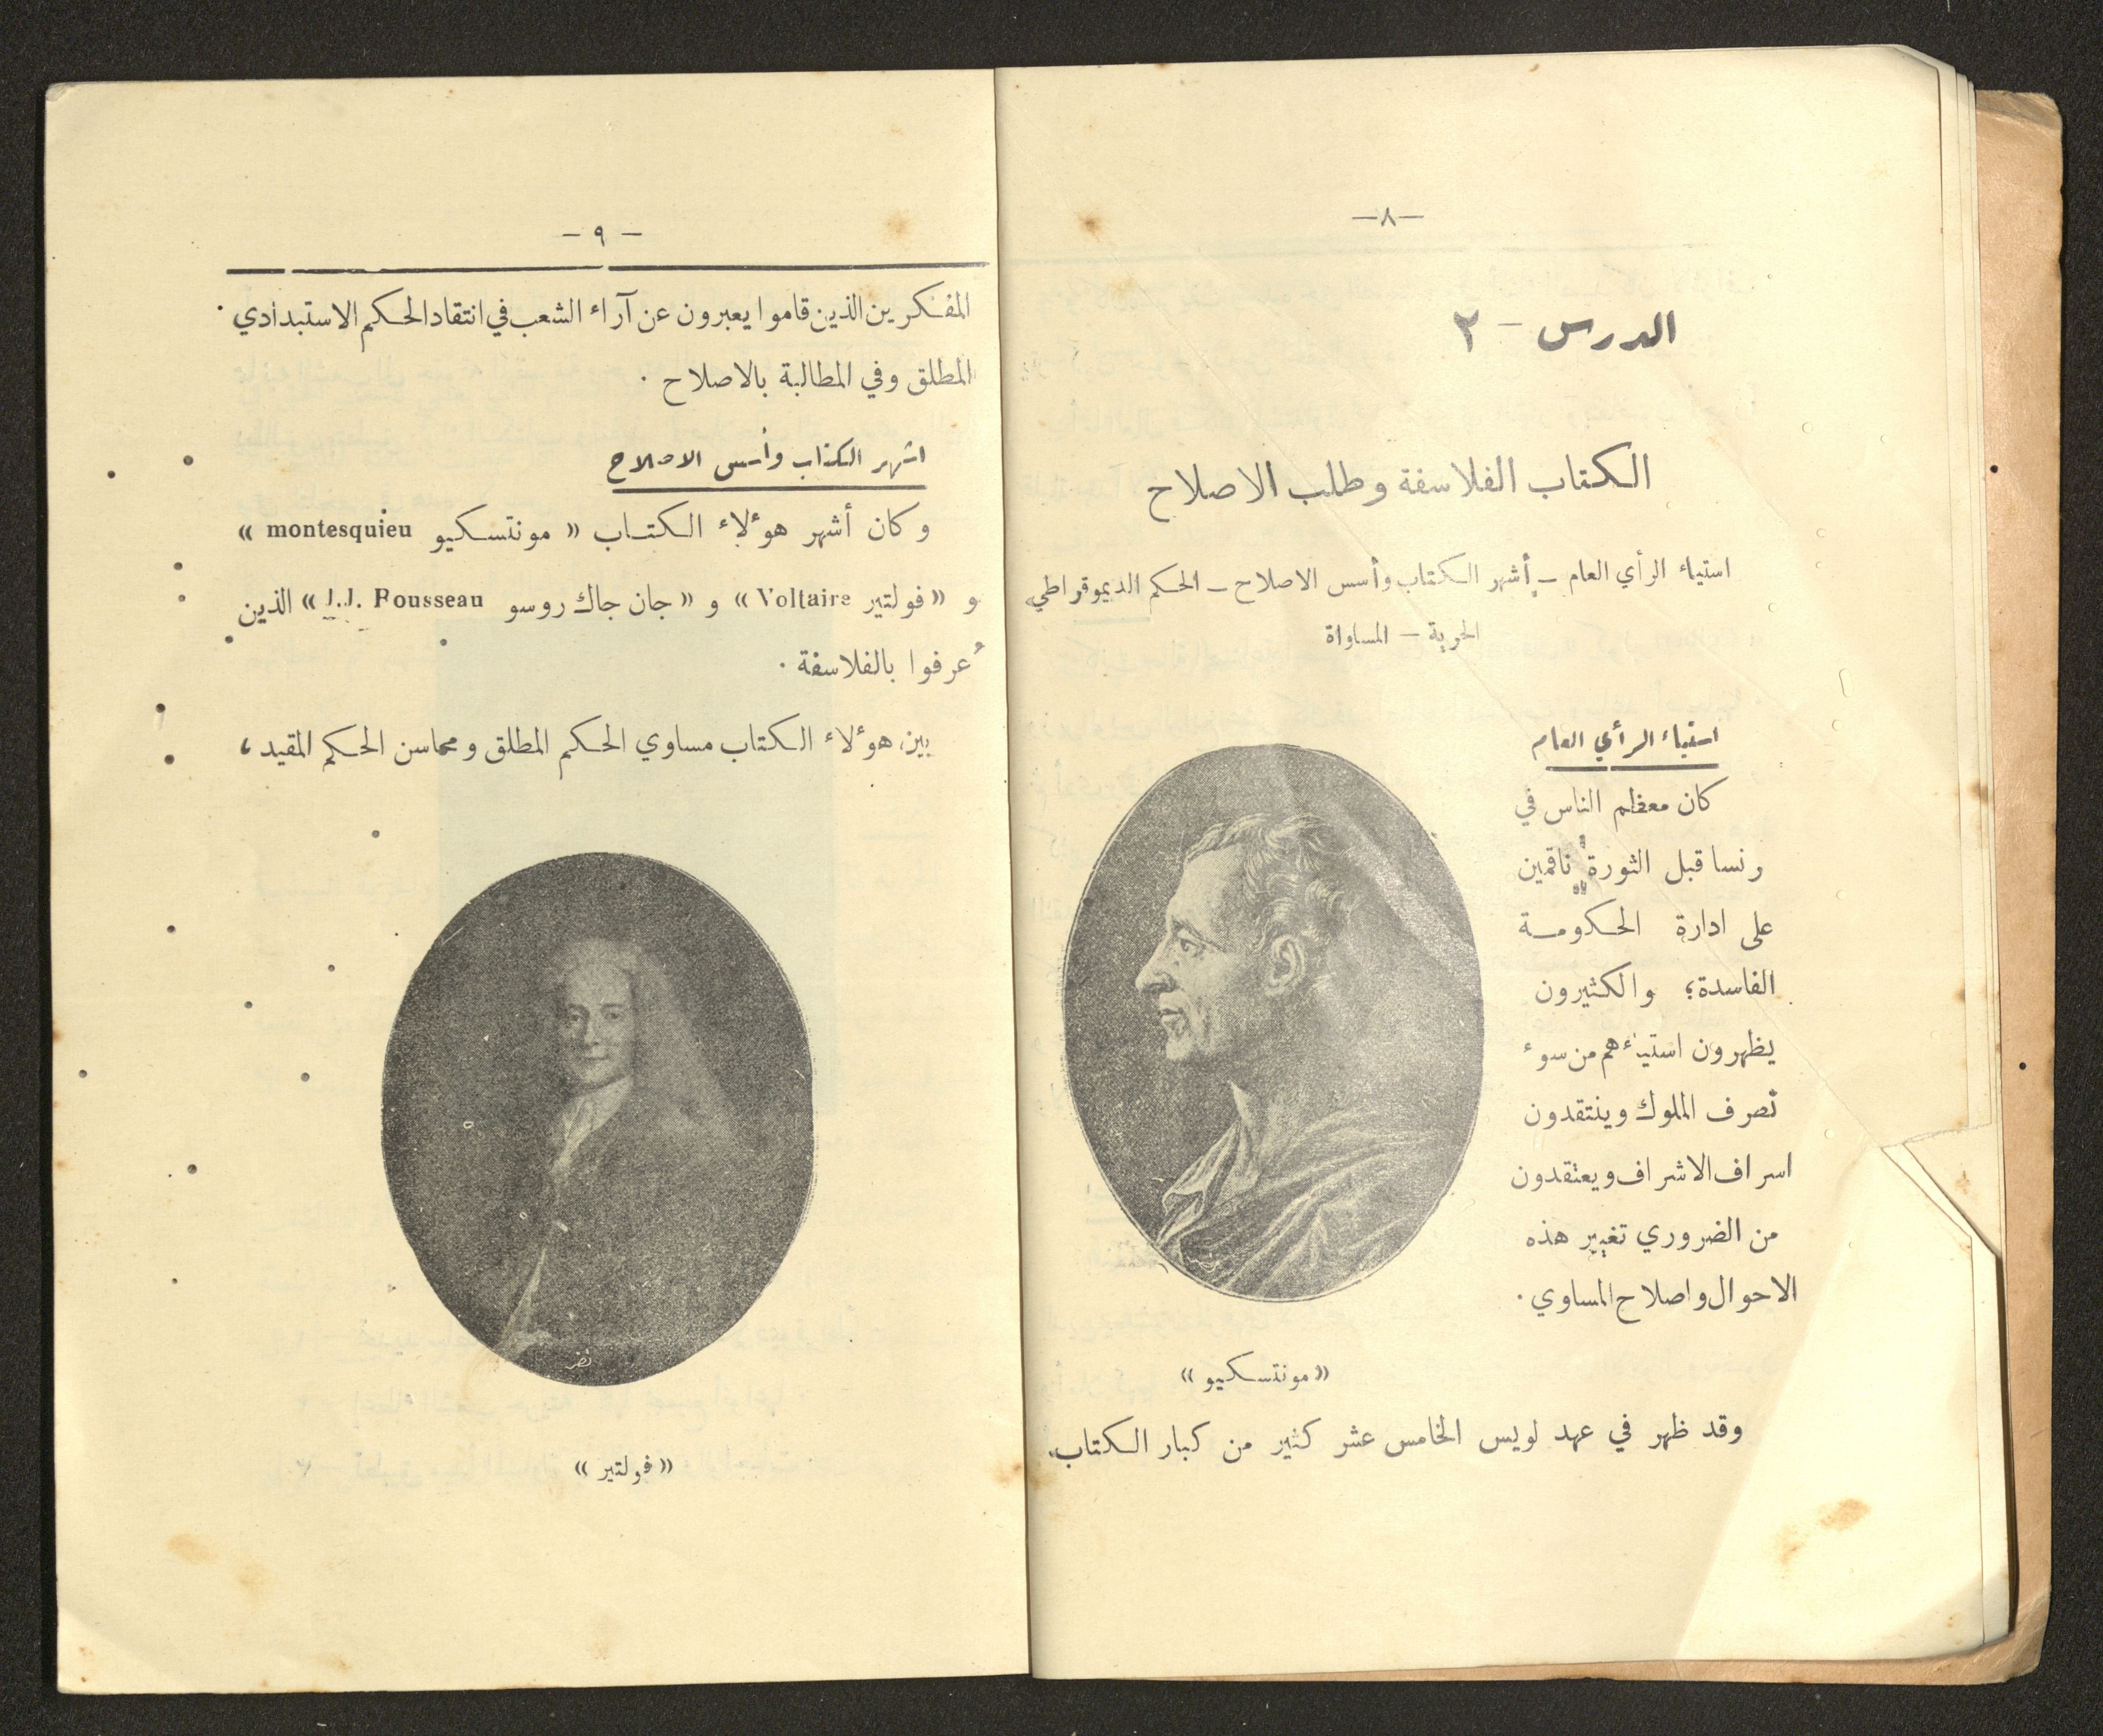 —٨—
الدرس – ٢
الكتاب الفلاسفة وطلب الاصلاح
استياء الرأي العام – أشهر الكتاب وأسس الاصلاح – الحكم الديموقراطي
الحرية – المساواة
استياء الرأي العام
كان معظم الناس في
رنسا قبل الثورة ناقمين
على ادارة الحكومة
الفاسدة؛ والكثيرون
يظهرون استياءهم من سوء
تصرف الملوك وينتقدون
اسراف الاشراف ويعتقدون
من الضروري تغيير هذه
الاحوال واصلاح المساوي .
«مونتسكيو»
وقد ظهر في عهد لويس الخامس عشر كثير من كبار الكتاب
– ٩ –
المفكرين الذين قاموا يعبرون عن آراء الشعب في انتقاد الحكم الاستبدادي .
المطلق وفي المطالبة بالاصلاح .
اشهر الكتاب وأسس الاصلاح
وكان أشهر هؤلاء الكتاب « مونتسكيو montesquieu »
و «فولتير Voltaire» و «جان جاك روسو J.J. Rousseau» الذين
عُرفوا بالفلاسفة .
بين هؤلاء الكتاب مساوي الحكم المطلق ومحاسن الحكم المقيد ،
نضر
«فولتير»